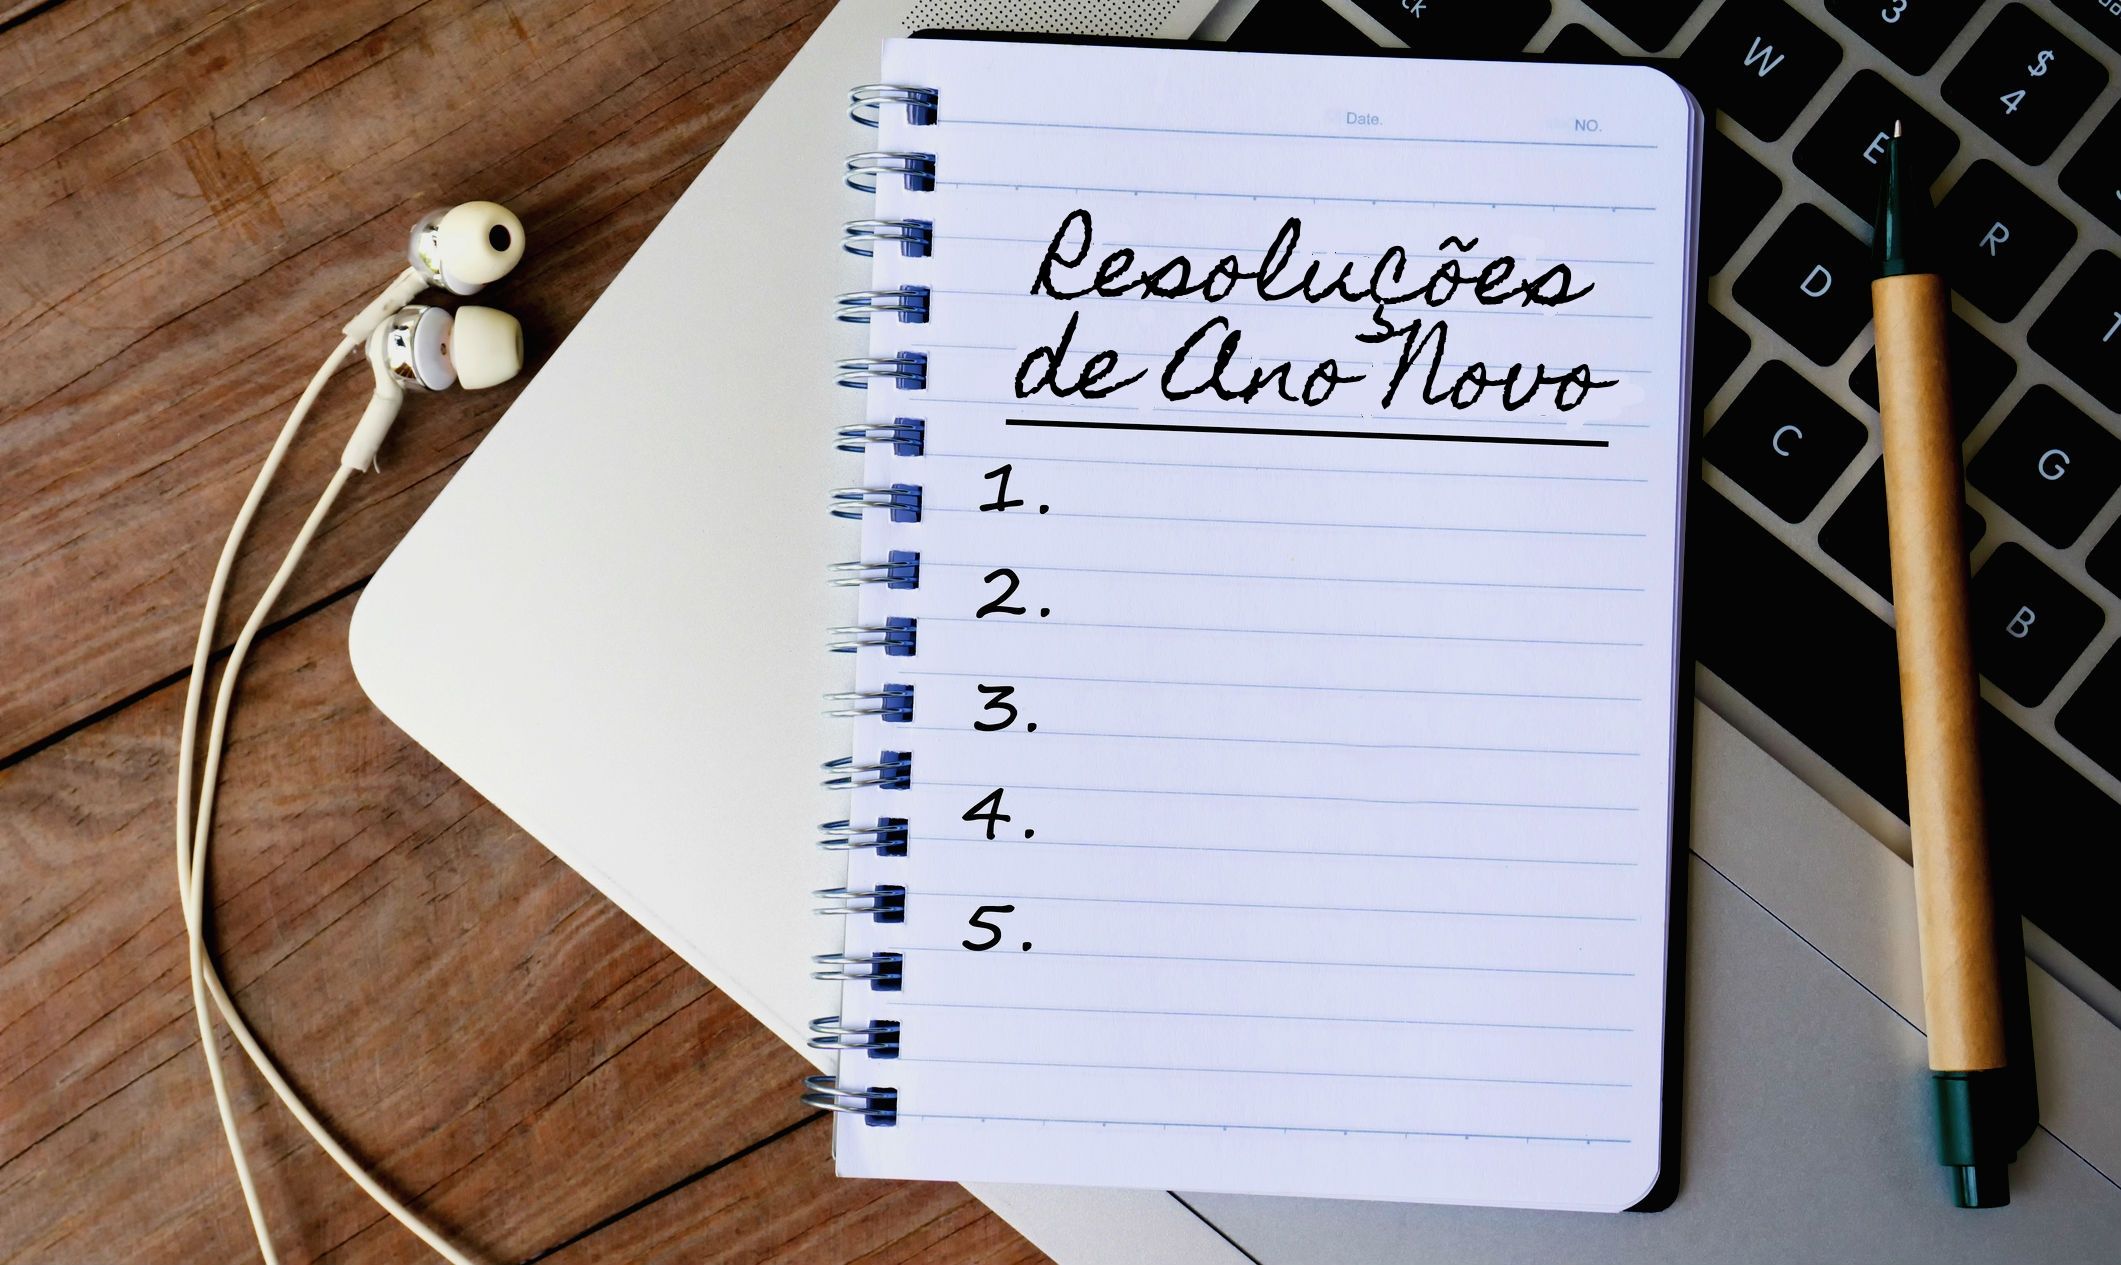 ck
3
W
$
4
E
R
D
C
G
B
Date.
NO.
Resoluções
de Ano Novo
1.
2.
3.
4.
5.